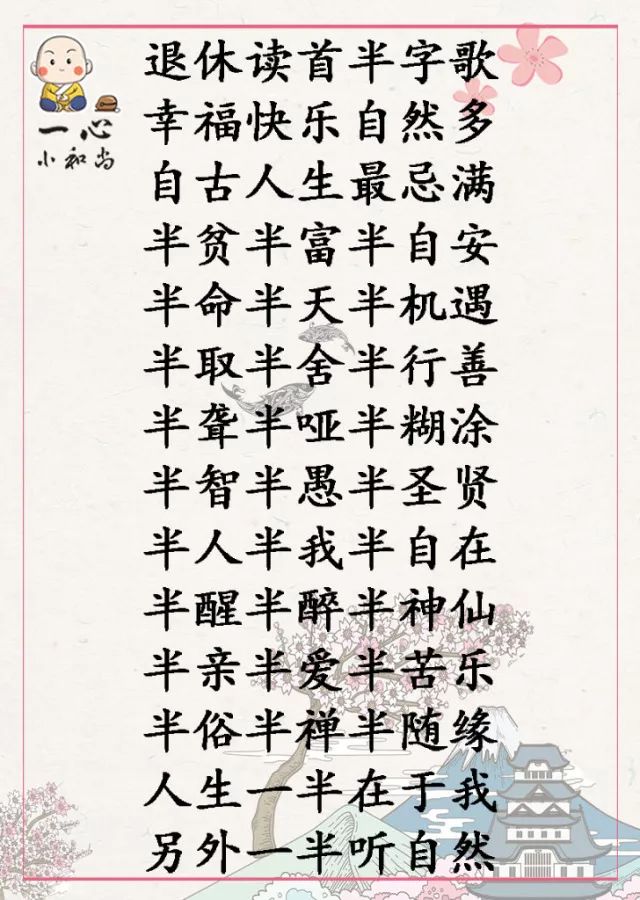 一心
小和尚
退休读首半字歌
幸福快乐自然多
自古人生最忌满
半贫半富半自安
半命半天半机遇
半取半舍半行善
半聋半哑半糊涂
半智半愚半圣贤
半人半我半自在
半醒半醉半神仙
半亲半爱半苦乐
半俗半禅半随缘
人生一半在于我
另外一半听自然